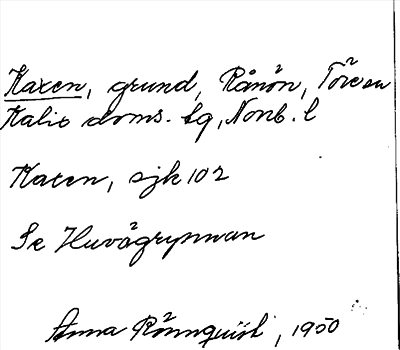 Kaxen, grund, Rånön, Töre sn
Kalix doms. lg, Norrb. l
Kaxen, sjk 102
Se Huvögrynnan
Anna Rönnquist, 1950